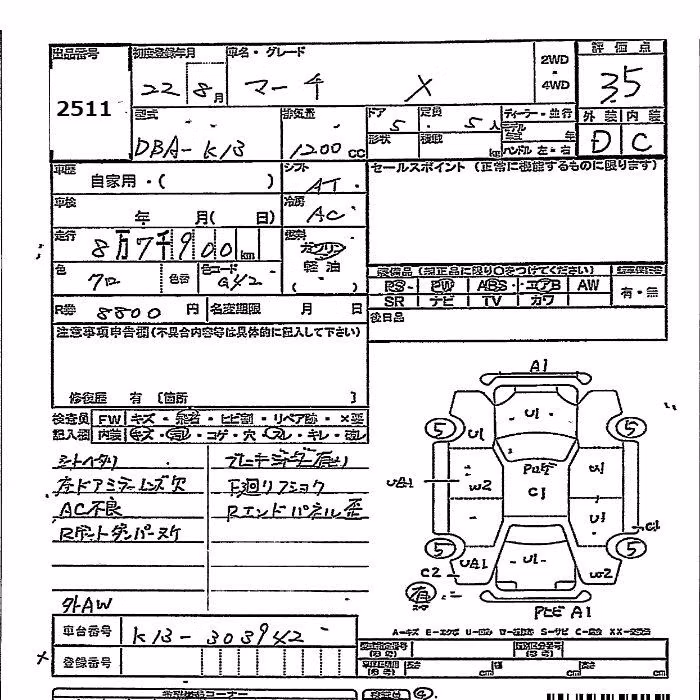 出品番号 初度登録年月 車名・グレード 2WD ・ 4WD 評価点
2511 22 8月 マーチ X 3.5
型式 排気量 ドア 定員 ディーラー・並行 外装 内装
DBA-K13 1200cc 5 5人 モデル 年 D C
形状 積載 kg ハンドル 左・右
車歴 シフト セールスポイント (正常に機能するものに限ります)
自家用・( ) AT
車検 冷房
年 月( 日) AC
走行 燃料
8万7千900km ガソリン
色 色替 色コード 軽油
( )
装備品 (純正品に限り○をつけてください)
PS PW ABS エアB AW 有・無
SR ナビ TV カワ
R券 8800円 名変期限 月 日 後日品
注意事項申告欄(不具合内容等は具体的に記入して下さい)
修復歴 有 〔箇所 〕
検査員 FW キズ・飛石・ヒビ割・リペア跡・X要
記入欄 内装 キズ・汚レ・コゲ・穴・スレ・キレ・破レ
シートハタリ
左ドアミラーレンズ欠 下廻リフショク
AC不良 Rエンドパネル歪
Rゲートダンパーヌケ
外AW
A1
U1
5 5
U1
UA1 W2 C1 U1
U1 C1
5 5
UA1 U1 W2
C2
有
A1
A-キズ E-エクボ U-凹ミ W-補修跡 S-サビ C-腐食 XX-交換済
車台番号 K13-303942
登録番号